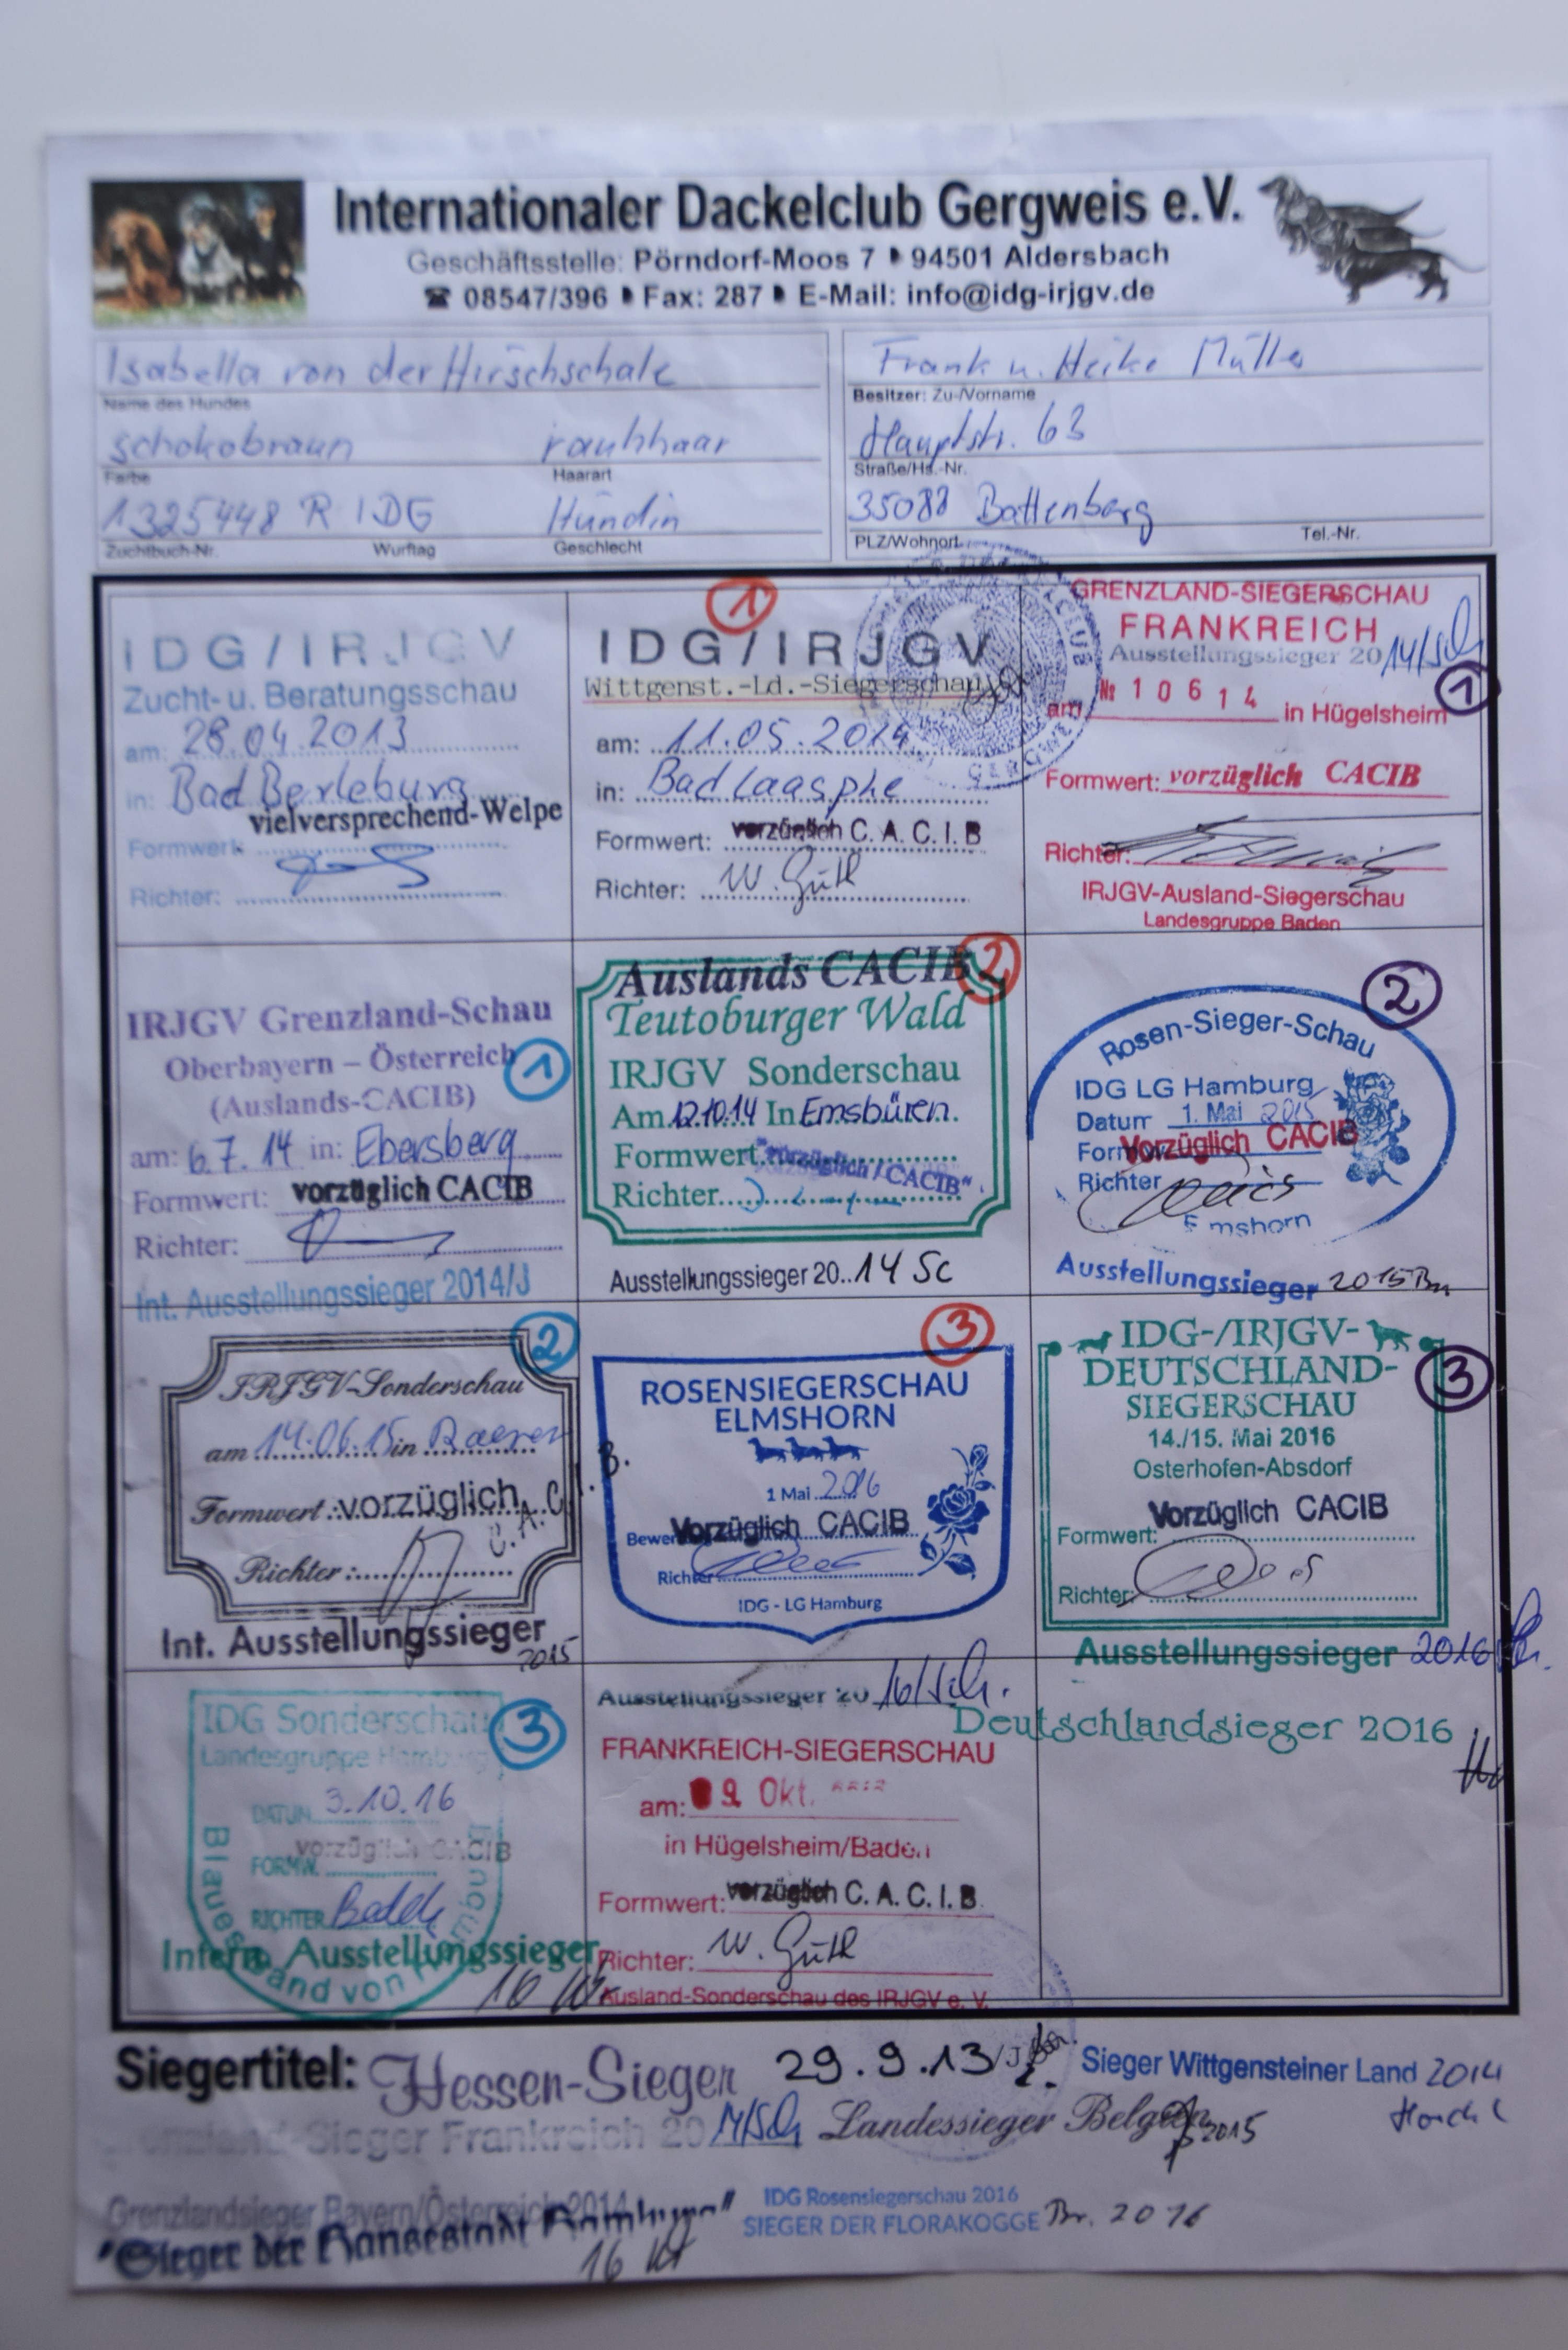 Internationaler Dackelclub Gergweis e.V.
Geschäftsstelle: Pörndorf-Moos 7 94501 Aldersbach
☎ 08547/396 Fax: 287 E-Mail: info@idg-irjgv.de
Isabella von der Hirschschale
Name des Hundes
schokobraun rauhhaar
Farbe Haarart
1325448 R IDG Hündin
Zuchtbuch-Nr. Wurftag Geschlecht
Frank u. Heike Müller
Besitzer: Zu-/Vorname
Hauptstr. 63
Straße/Hs.-Nr.
35088 Battenberg
PLZ/Wohnort Tel.-Nr.
IDG/IRJGV
Zucht- u. Beratungsschau
am: 28.04.2013
in: Bad Berleburg
vielversprechend-Welpe
Formwert:
Richter:
1
IDG/IRJGV
Wittgenst.-Ld.-Siegerschau
am: 11.05.2014
in: Bad Laasphe
Formwert: vorzüglich C.A.C.I.B
Richter: W. Gütl
GRENZLAND-SIEGERSCHAU
FRANKREICH
Ausstellungssieger 2014/Sch
1
№ 10614
am in Hügelsheim
Formwert: vorzüglich CACIB
Richter:
IRJGV-Ausland-Siegerschau
Landesgruppe Baden
IRJGV Grenzland-Schau
Oberbayern – Österreich
1
(Auslands-CACIB)
am: 6.7.14 in: Ebersberg
Formwert: vorzüglich CACIB
Richter:
Int. Ausstellungssieger 2014/J
Auslands CACIB
2
Teutoburger Wald
IRJGV Sonderschau
Am 12.10.14 In Emsbüren.
Formwert "vorzüglich / CACIB"
Richter
Ausstellungssieger 20..14 Sc
2
Rosen-Sieger-Schau
IDG LG Hamburg
Datum 1. Mai 2015
Vorzüglich CACIB
Richter
Elmshorn
Ausstellungssieger 2015 Bn
2
IRJGV-Sonderschau
am 14.06.15 in Raeren
Formwert: vorzüglich C.A.C.I.B.
Richter:
Int. Ausstellungssieger
2015
3
ROSENSIEGERSCHAU
ELMSHORN
1 Mai 2016
Vorzüglich CACIB
Richter
IDG - LG Hamburg
Ausstellungssieger 2016/Sch.
IDG-/IRJGV-
DEUTSCHLAND-
3
SIEGERSCHAU
14./15. Mai 2016
Osterhofen-Absdorf
Vorzüglich CACIB
Formwert:
Richter:
Ausstellungssieger 2016
Deutschlandsieger 2016
IDG Sonderschau
3
Landesgruppe Hamburg
DATUM 3.10.16
vorzüglich CACIB
FORMW.
RICHTER
Intern. Ausstellungssieger
16
FRANKREICH-SIEGERSCHAU
am: 9 Okt.
in Hügelsheim/Baden
Formwert: vorzüglich C.A.C.I.B
Richter: W. Gütl
Ausland-Sonderschau des IRJGV e. V.
Siegertitel: Hessen-Sieger 29.9.13/J Sieger Wittgensteiner Land 2014
Grenzland-Sieger Frankreich 2014/Sch Landessieger Belgien 2015
Grenzlandsieger Bayern/Österreich 2014
"Sieger der Hansestadt Hamburg"
16
IDG Rosensiegerschau 2016
SIEGER DER FLORAKOGGE Br. 2016